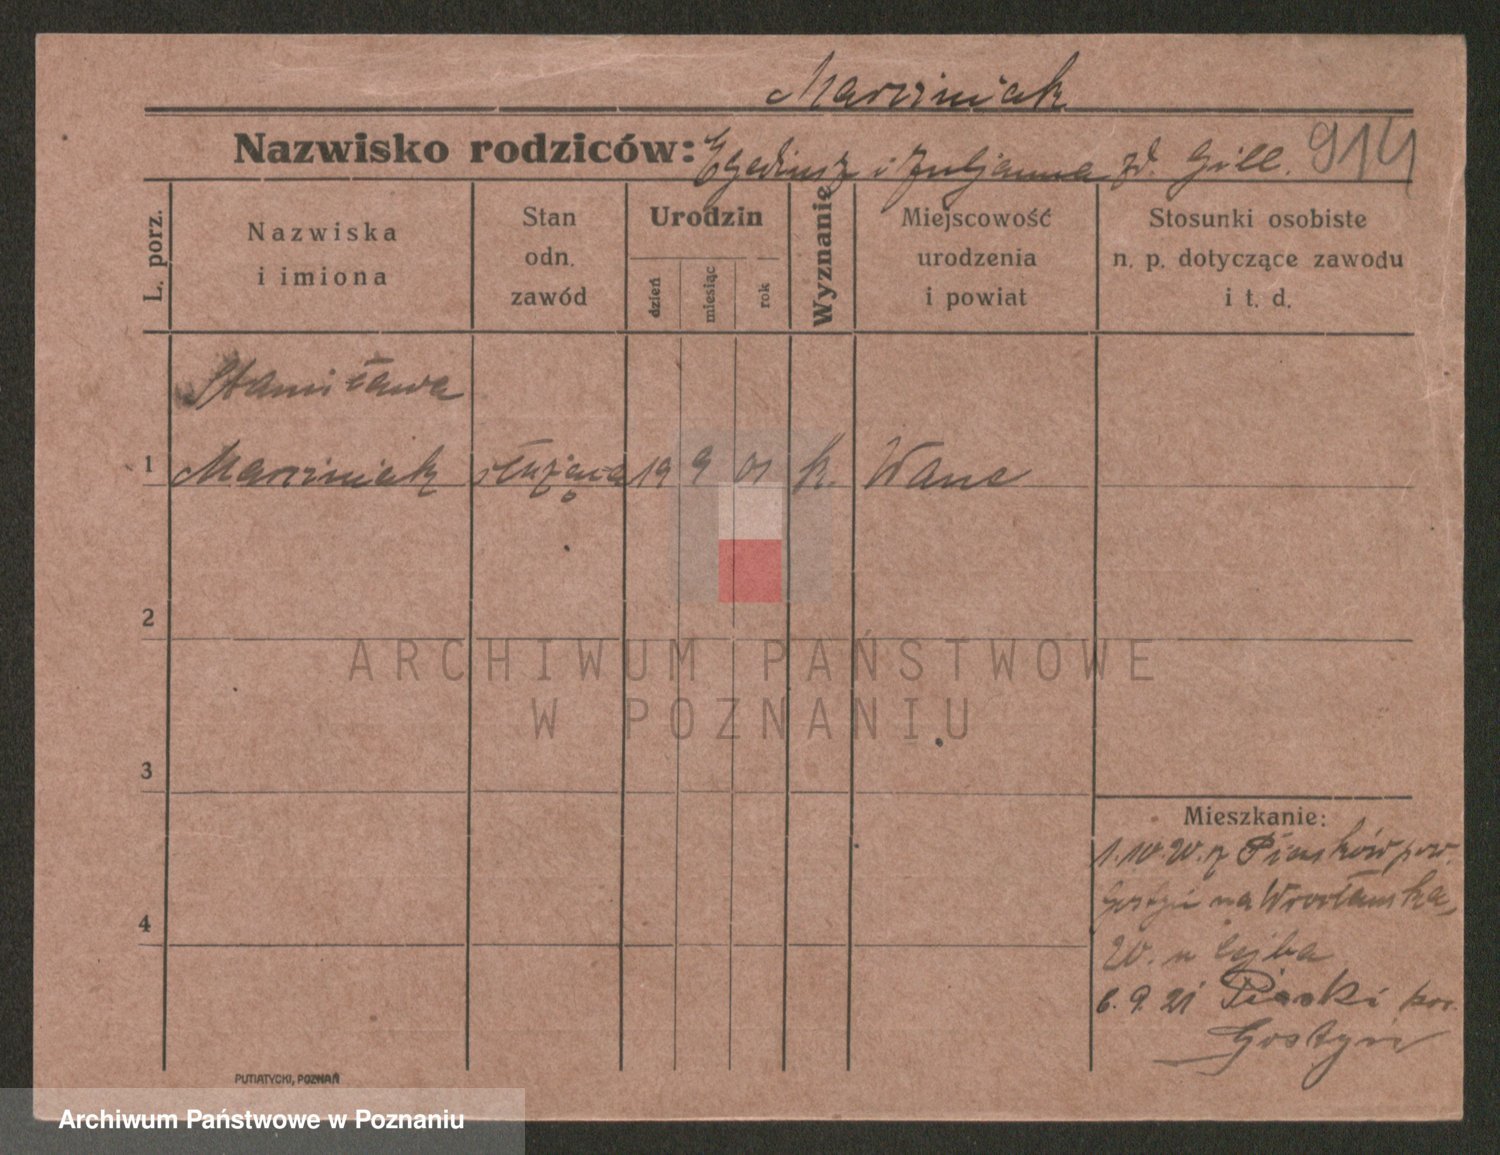 Marciniak
Nazwisko rodziców: Egediusz i Juljanna zd. Gill. 914
L. porz.
Nazwiska
i imiona
Stan
odn.
zawód
Urodzin
dzień
miesiąc
rok
Wyznanie
Miejscowość
urodzenia
i powiat
Stosunki osobiste
n. p. dotyczące zawodu
i t. d.
Stanisława
1 Marciniak służąca 19 9 01 k.
2
ARCHIWUM PAŃSTWOWE
W POZNANIU
3
Mieszkanie:
1.10.20. z Piasków pow.
Gostyń na Wrocławska,
20. u
4
6.9.21 Piaski pow.
Gostyń
PUTIATYCKI, POZNAŃ
Archiwum Państwowe w Poznaniu